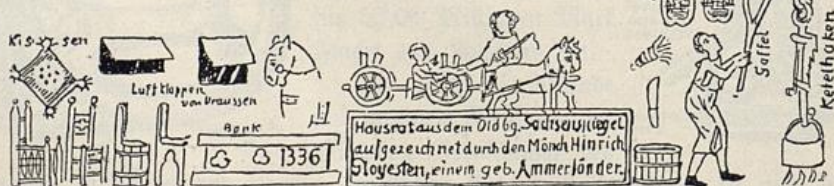 Kissen
Luftklappen
von Draussen
Bank
1336
Hausrat aus dem Oldbg. Sachsenspiegel
aufgezeichnet durch den Mönch Hinrich
Gloyesten, einem geb. Ammerländer.
Gaffel
Ketelhaken